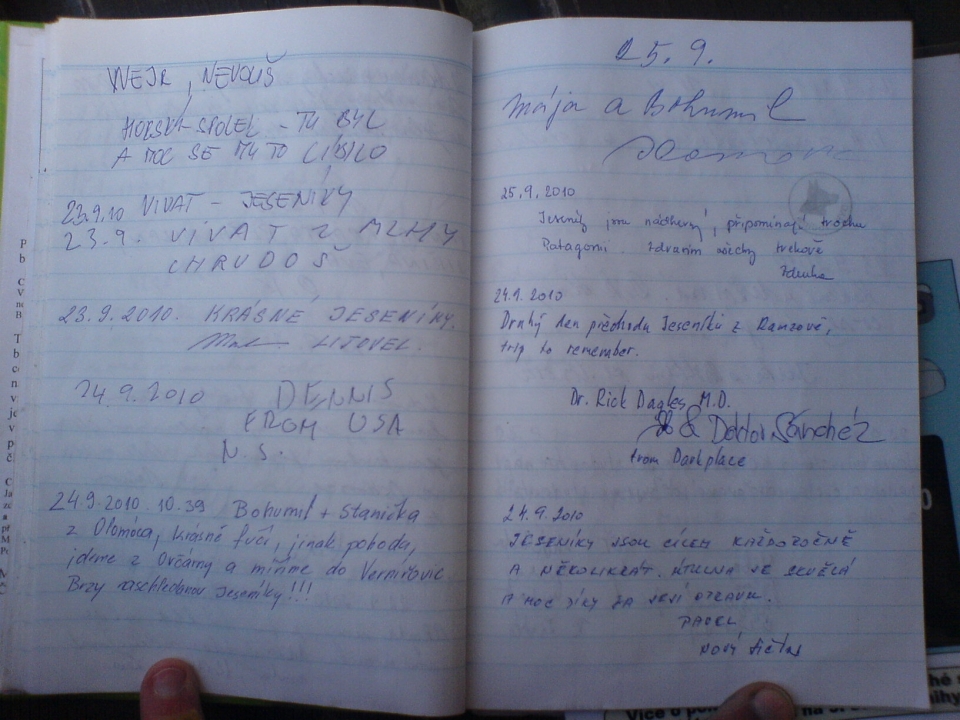 WEJR, NEVOLIŠ
HORSKÝ SPOLEK - TU BYL
A MOC SE MU TO LÍBILO
23.9.10 VIVAT - JESENÍKY
23.9. VIVAT Z MLHY
CHRUDOŠ
23.9.2010. KRÁSNÉ JESENÍKY.
LITOVEL.
24.9.2010 DENNIS
FROM USA
N.S.
24.9.2010 10.39 Bohumil + Stanička
z Olomouce, krásně fučí, jinak pohoda,
jdeme z Ovčárny a míříme do Vernířovic
Brzy naschledanou Jeseníky!!!
25.9.
Mája a Bohumil
25.9.2010
Jeseníky jsou nádherný, připomínají trochu
Patagonii. Zdravím všechny trekaře
Zdeňka
24.9.2010
Druhý den přechodu Jeseníků z Ramzové,
trip to remember.
Dr. Rick Dagles M.D.
& Doktor Sánchéz
from Darkplace
24.9.2010
JESENÍKY JSOU CÍLEM KAŽDOROČNĚ
A NĚKOLIKRÁT. ÚTULNA JE SKVĚLÁ
A MOC DÍKY ZA JEJÍ OPRAVU.
PAVEL
NOVÝ JIČÍN